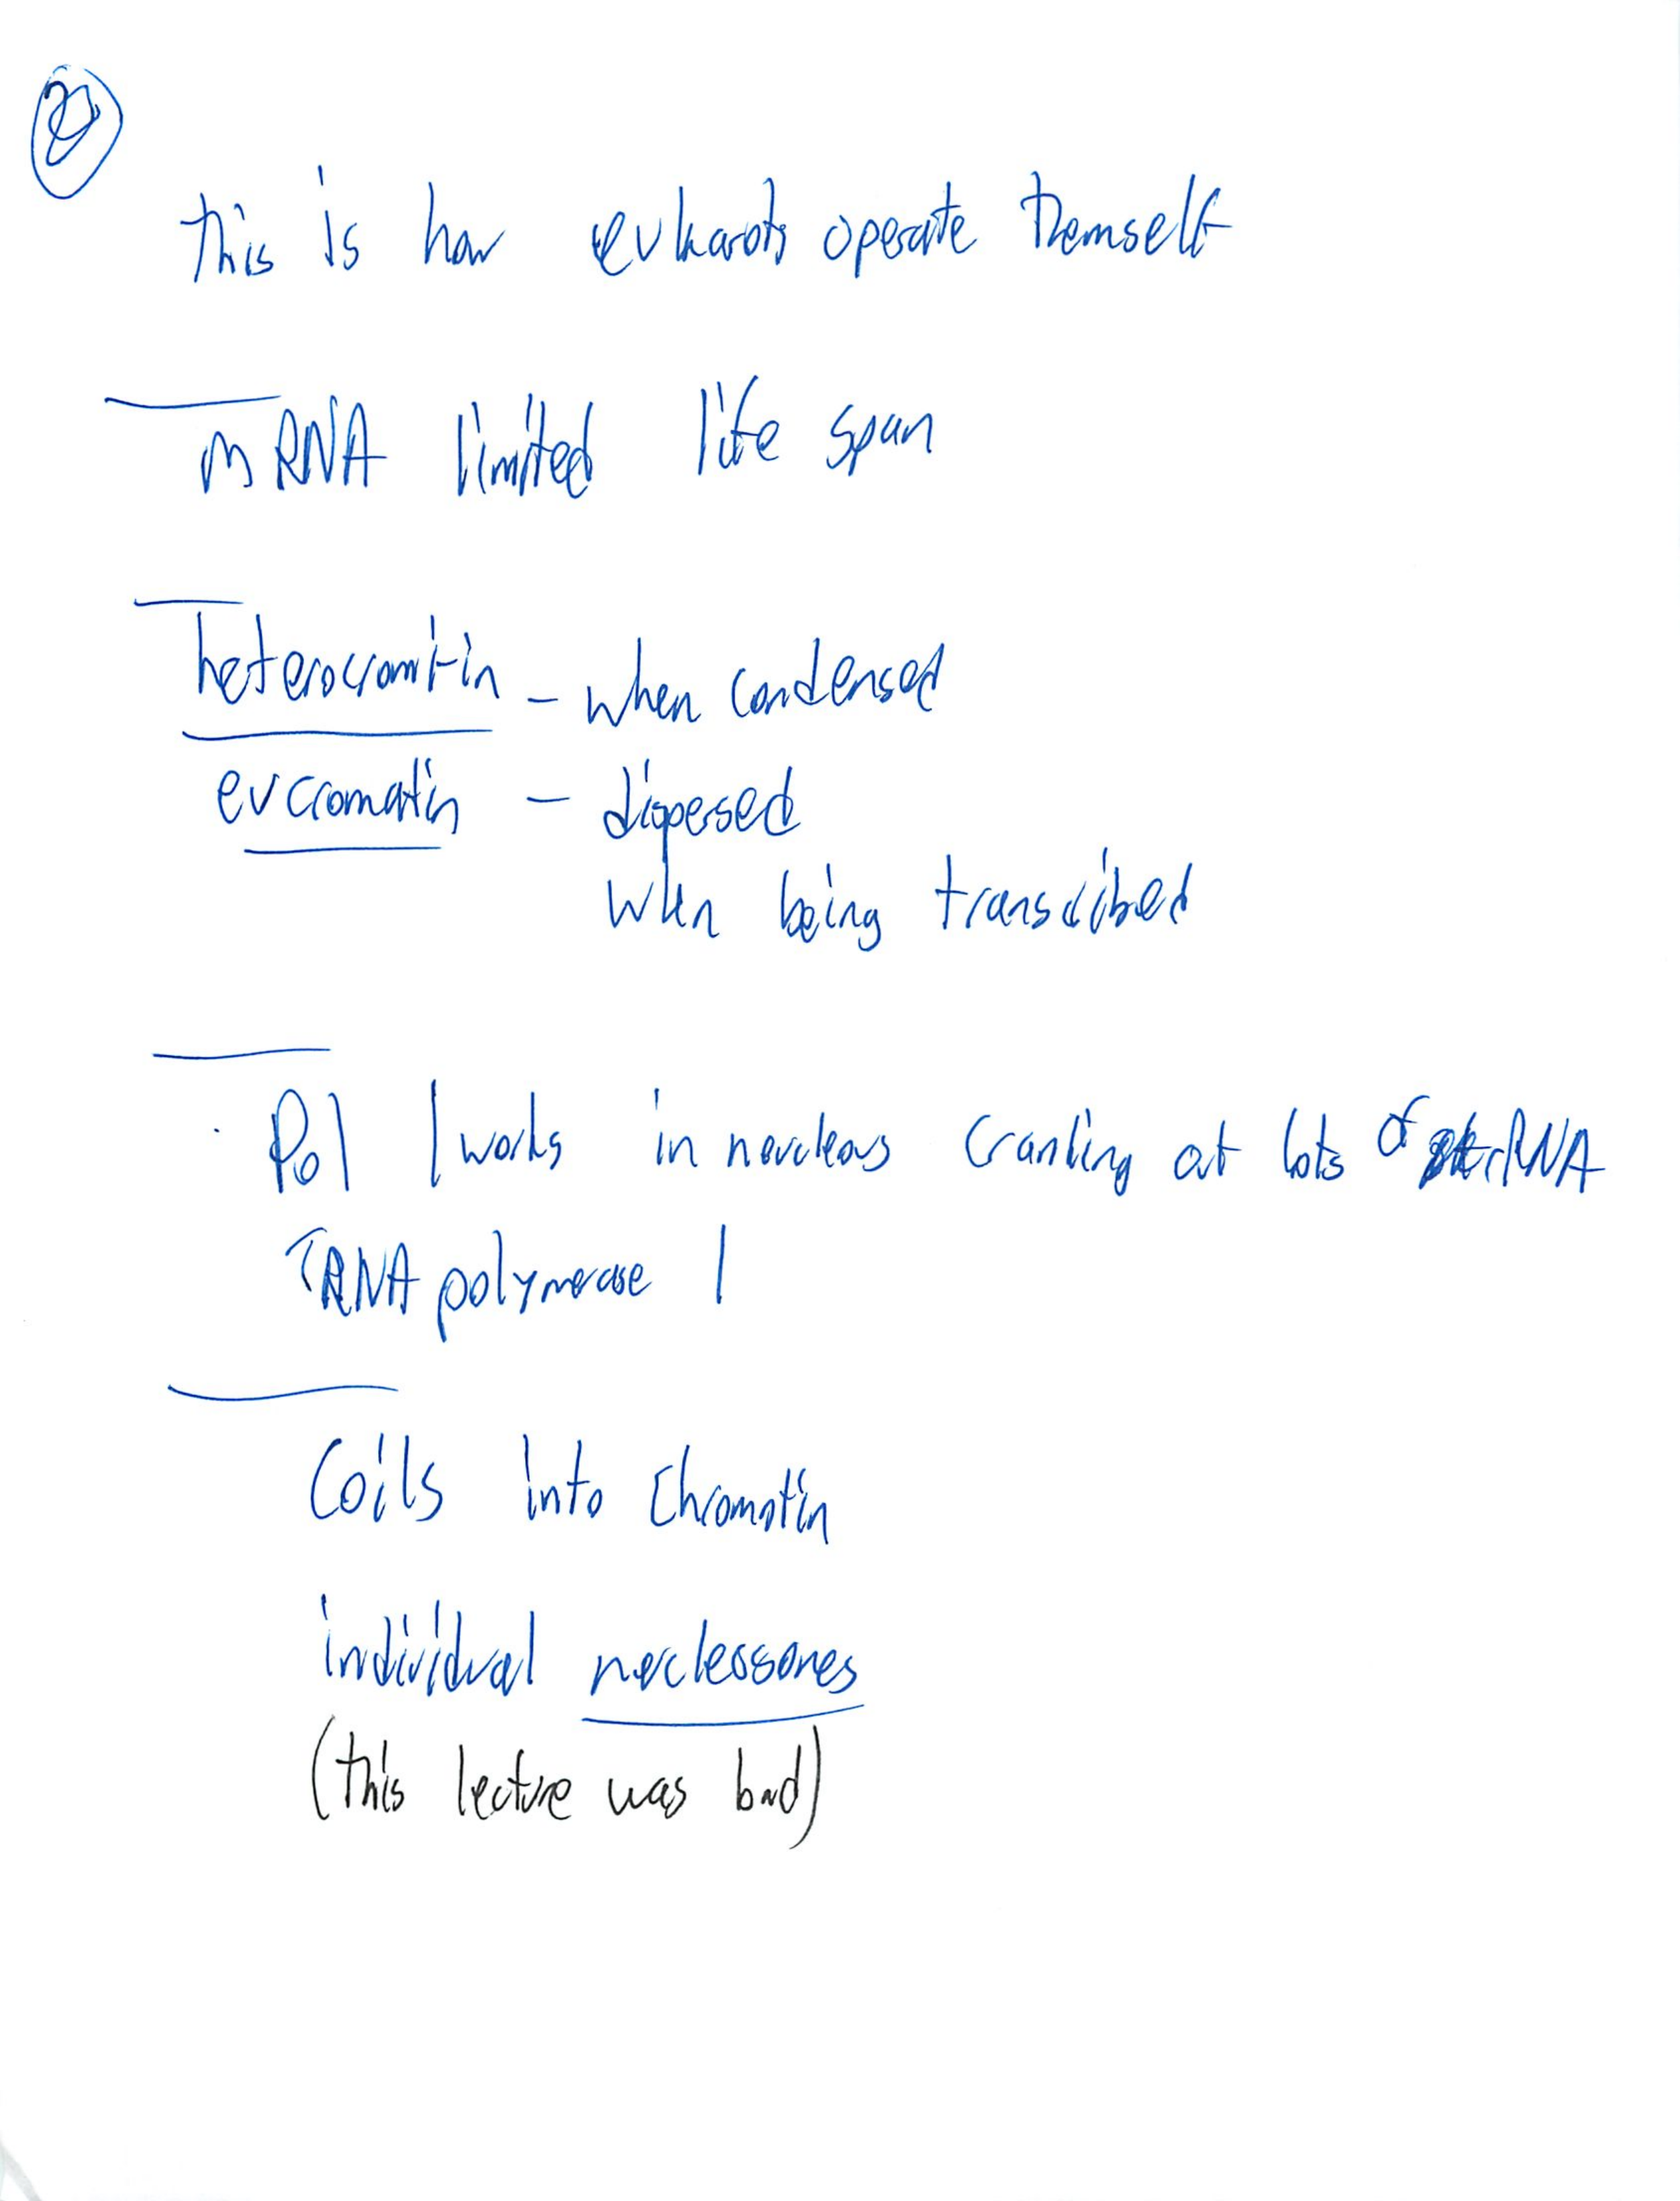 2
this is how eukarots operate themself
mRNA limited life span
heterocromitin - when condensed
eucromatin - dispersed
when being transcribed
Pol 1 works in neucleous cranking out lots of rRNA
RNA polymerase 1
Coils into Chromatin
individual neclessomes
(this lecture was bad)